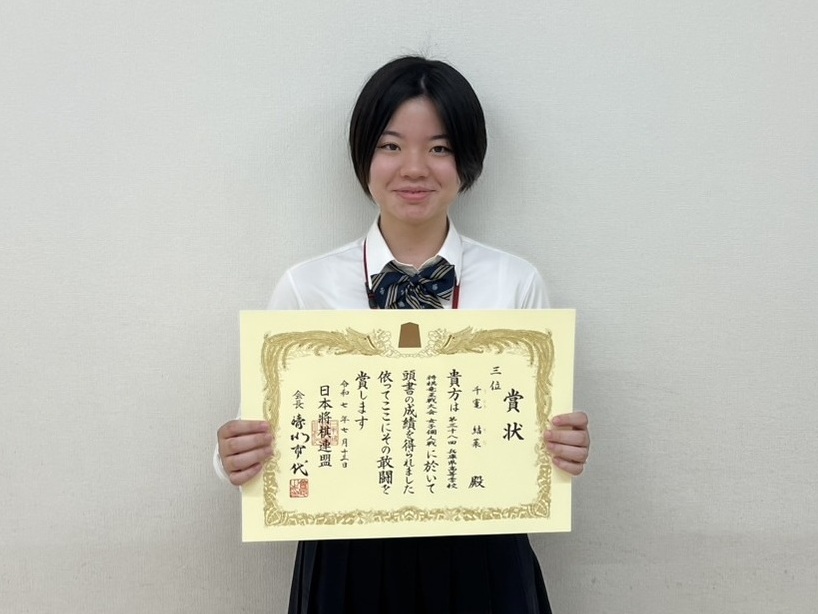 賞状
三位
千竃 結菜 殿
貴方は第三十八回 兵庫県高等学校
将棋竜王戦大会 女子個人戦に於いて
頭書の成績を得られました
依ってここにその敢闘を
賞します
令和七年七月十三日
日本将棋連盟
会長